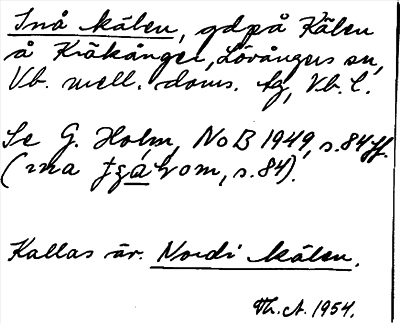 Snå kålen, gdpå Kålen
å Kråkånger, Lövångers sn,
Vb. mell. doms. tg, Vb. l.
Se G. Holm, NoB 1949, s. 84 ff.
(ma s. 84).
Kallas äv. Nordi kålen.
Th. A. 1954.